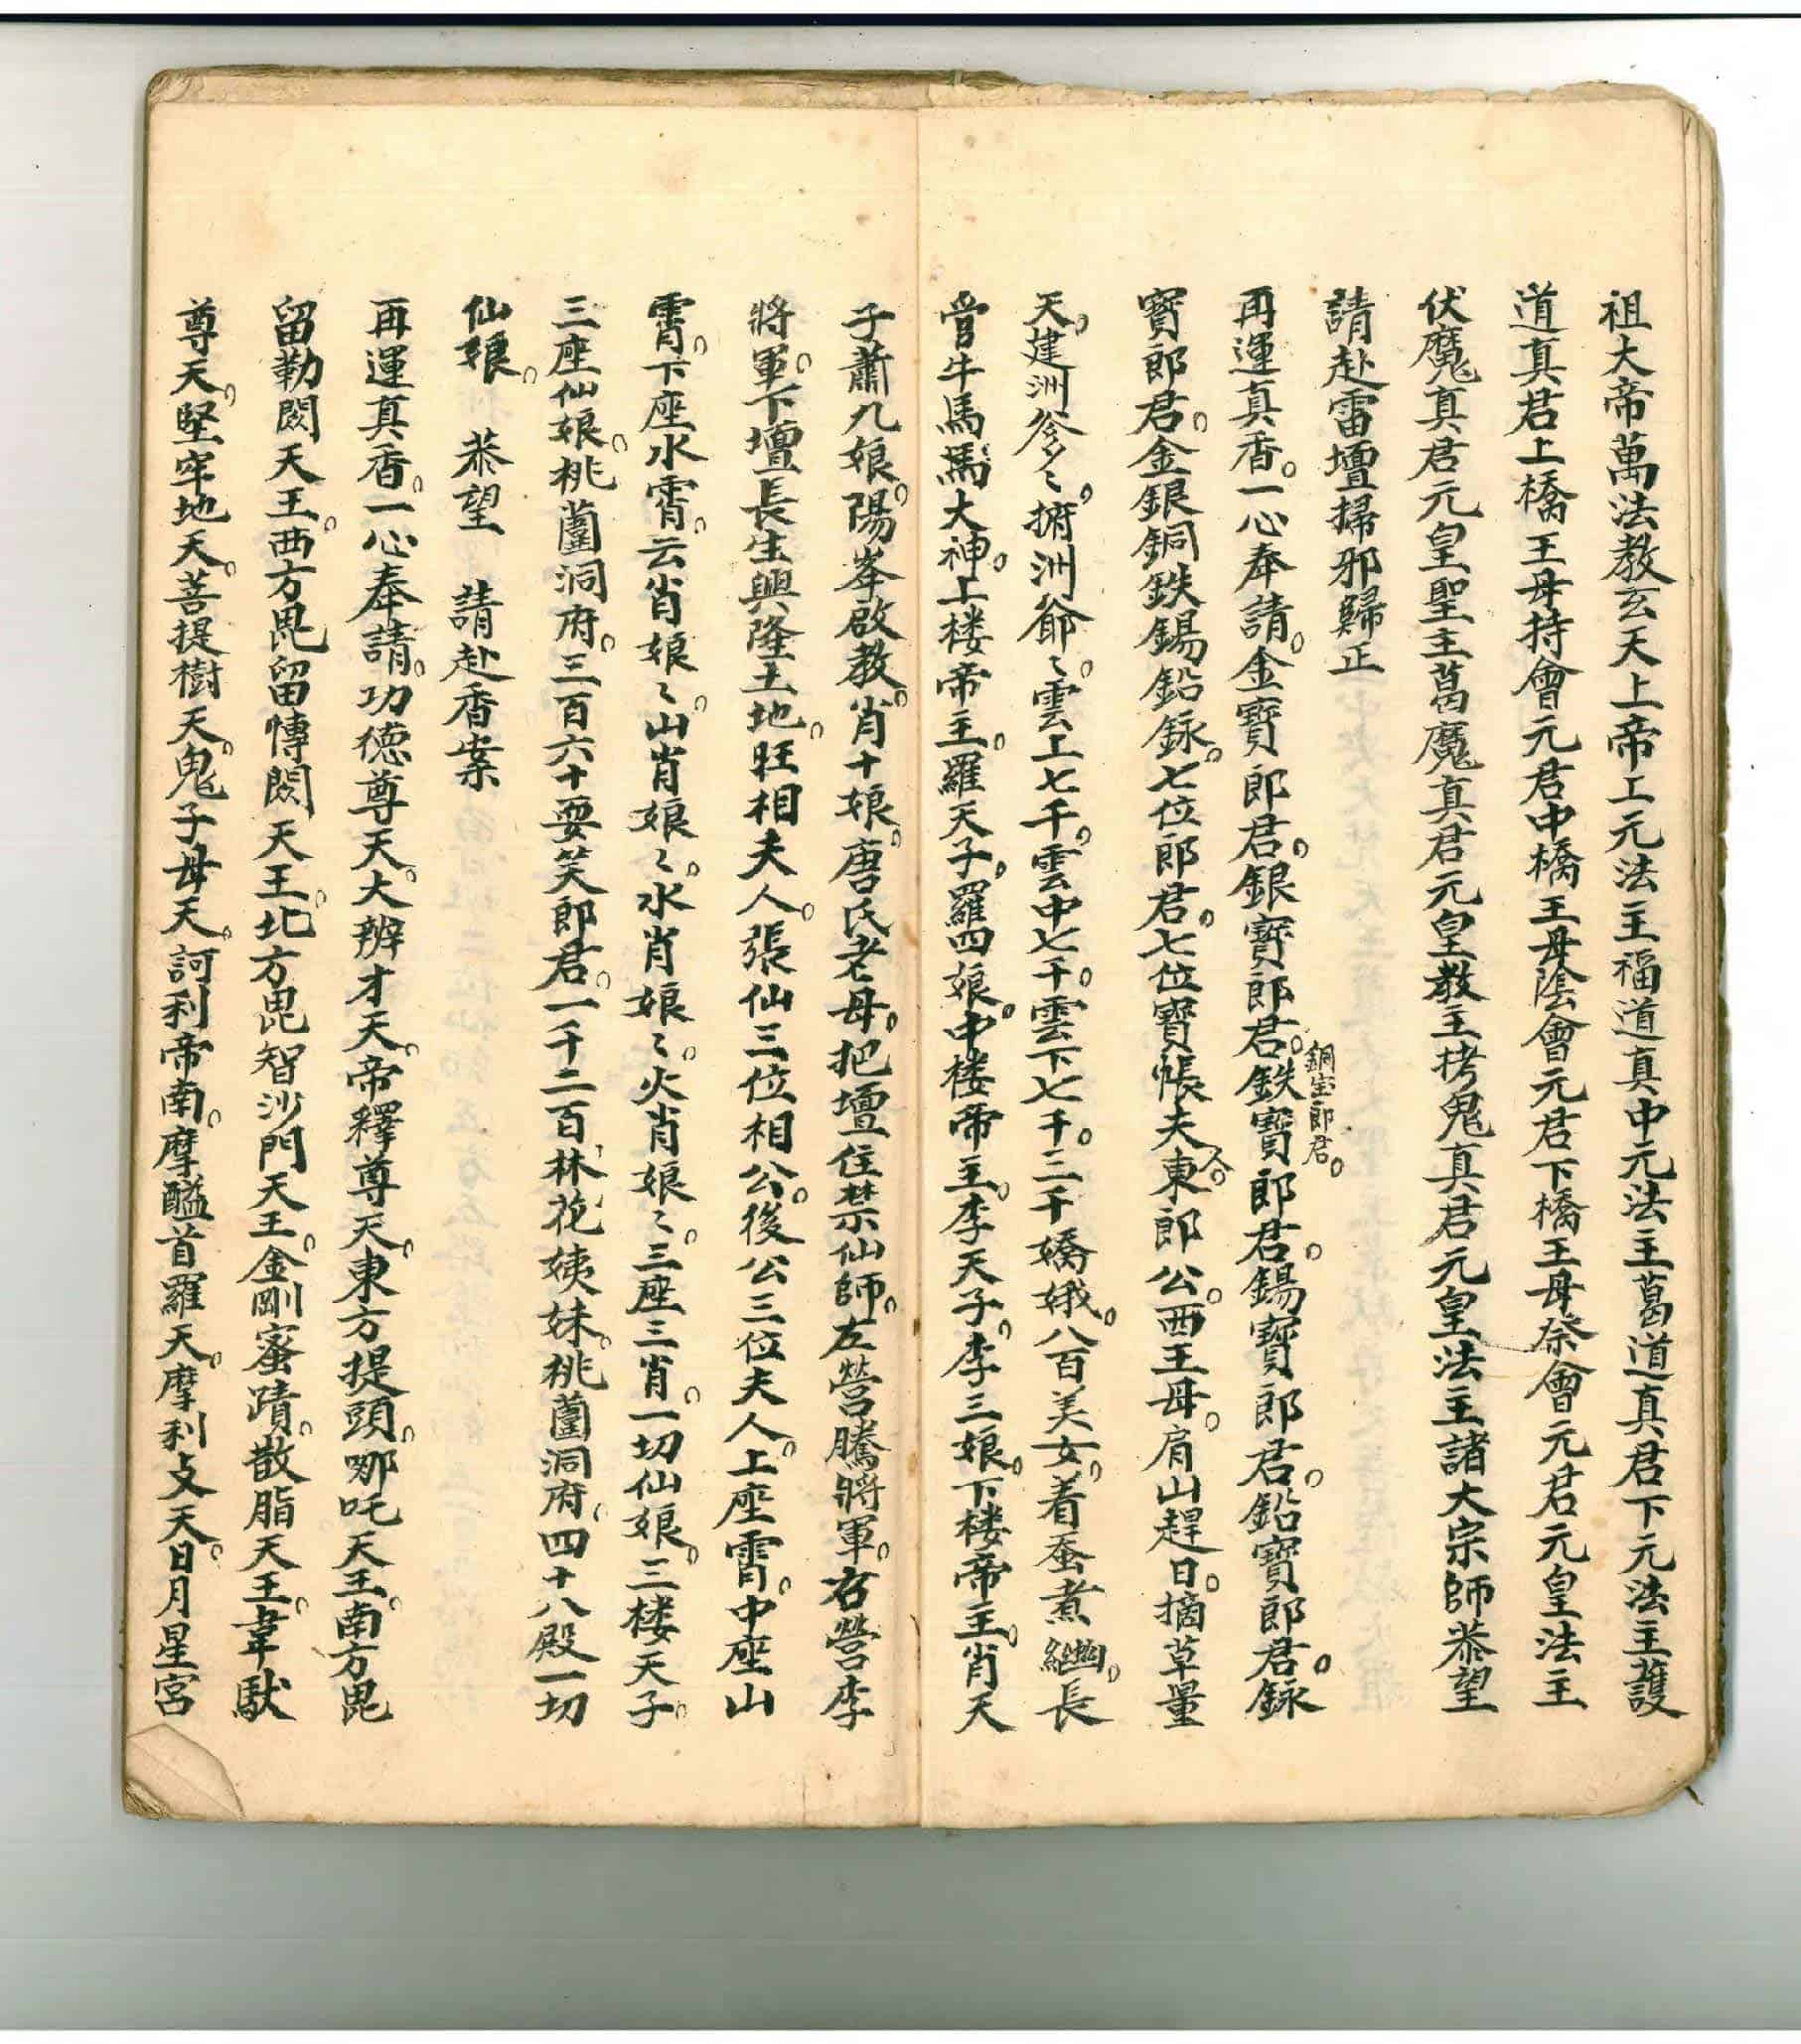 祖大帝萬法教玄天上帝上元法主福道真中元法主葛道真君下元法主護
道真君上橋王母持會元君中橋王母陰會元君下橋王母祭會元君元皇法主
伏魔真君元皇聖主葛魔真君元皇教主拷鬼真君元皇法主諸大宗師恭望
請赴雷壇掃邪歸正
再運真香。一心奉請。金寶郎君。銀寶郎君。銅宝郎君。鉄寶郎君。錫寶郎君。鉛寶郎君。銾
寶郎君。金銀銅鉄錫鉛銾。七位郎君。七位寶帳夫人。東郎公。西王母。肩山趕日。摘草量
天。建洲爹々。撫洲爺々。雲上七千。雲中七千。雲下七千。三千嬌娥。八百美女。着蚕煮繭。長
管牛馬大神。上楼帝主。羅天子。羅四娘。中楼帝主。李天子。李三娘。下楼帝主。肖天
子蕭九娘。陽峯啟教。肖十娘。唐氏老母。把壇住禁仙師。左營騰將軍。右營李
將軍。下壇長生興隆土地。旺相夫人。張仙三位相公。後公三位夫人。上座霄。中座山
霄。下座水霄。云肖娘々。山肖娘々。水肖娘々。火肖娘々。三座三肖。一切仙娘。三楼天子。
三座仙娘。桃薗洞府。三百六十耍笑郎君。一千二百林花姨妹。桃薗洞府。四十八殿一切
仙娘。 恭望 請赴香案
再運真香。一心奉請。功德尊天。大辨才天。帝釋尊天。東方提頭。哪吒天王。南方毘
留勒閦天王。西方毘留愽閦天王。北方毘智沙門天王。金剛蜜蹟。散脂天王。韋馱
尊天。堅牢地天。菩提樹天。鬼子母天。訶利帝南。摩醯首羅天。摩利支天。日月星宮